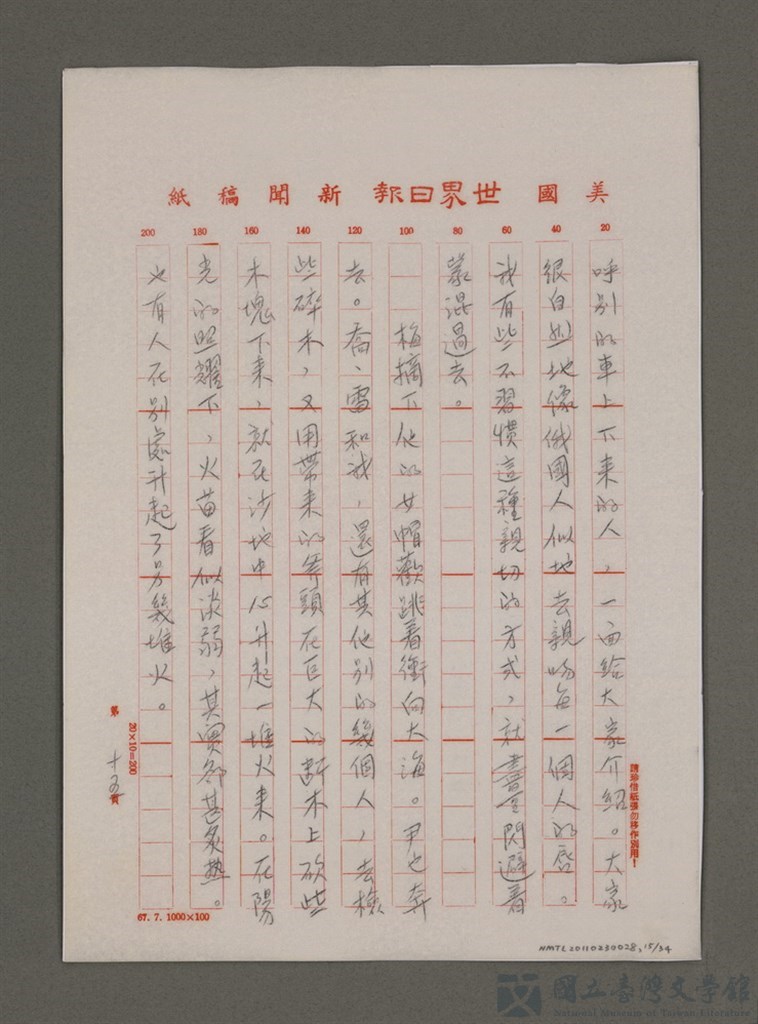 美國世界日報新聞稿紙
20 40 60 80 100 120 140 160 180 200
呼別的車上下来的人，一面給大家介紹。大家
很自然地像俄國人似地去親吻每一個人的唇。
我有些不習慣這種親切的方式，就盡量閃避着
蒙混過去。
梅摘下他的女帽歡跳着衝向大海。尹也奔
去。喬、雷和我，還有其他別的幾個人，去檢
些碎木，又用帶来的斧頭在巨大的斷木上砍些
木塊下来，就在沙地中心升起一堆火来。在陽
光的照耀下，火苗看似淡弱，其實却甚炙热。
也有人在別處升起了另幾堆火。
請珍惜紙張勿移作別用！
20×10=200
第十五頁
67. 7. 1000×100
NMTL 20110230028, 15/34
國立臺灣文學館
National Museum of Taiwan Literature